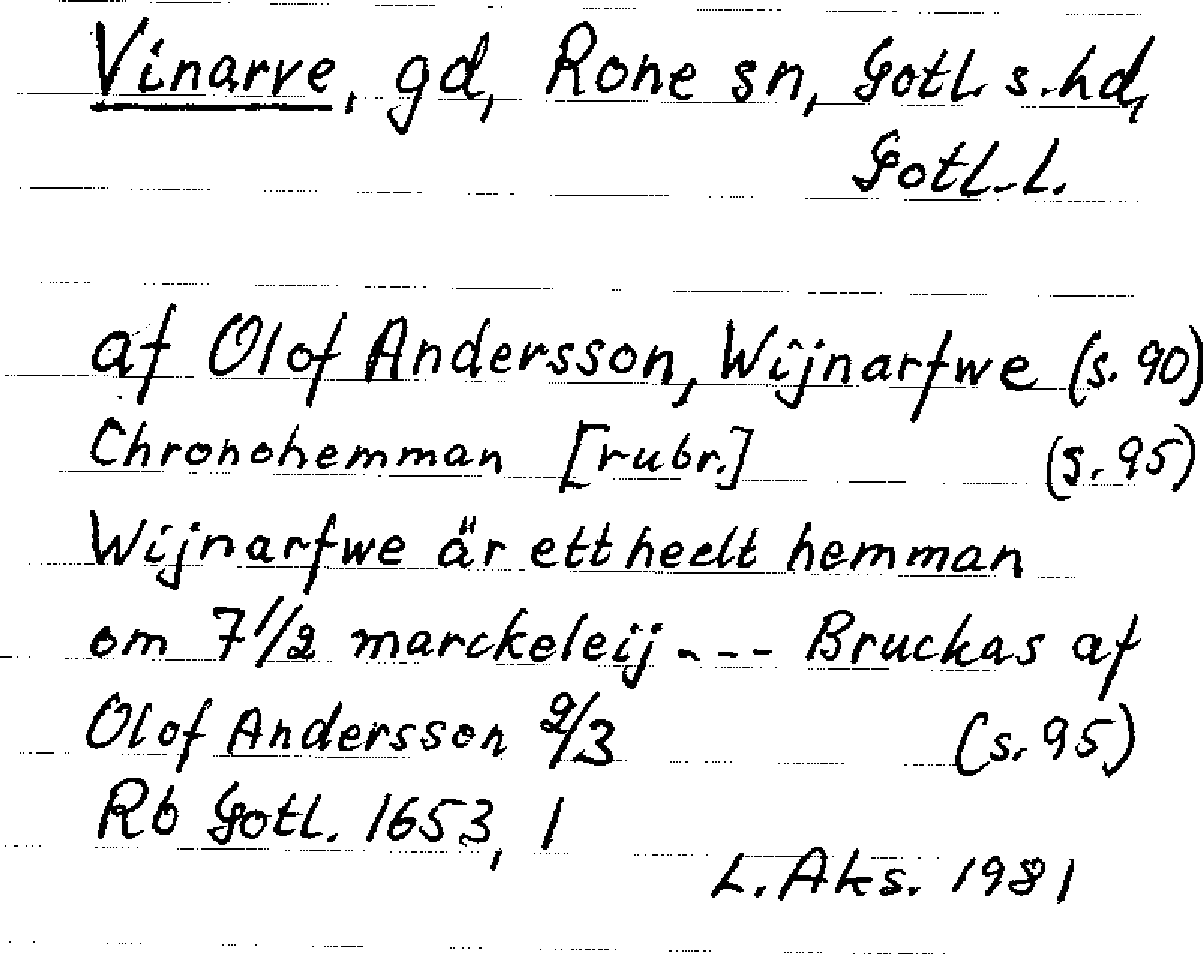 Vinarve, gd, Rone sn, Gotl. s. hd,
Gotl. l.
af Olof Andersson, Wijnarfwe (s. 90)
Chronohemman [rubr.] (s. 95)
Wijnarfwe är ett heelt hemman
om 7 1/2 marckeleij --- Bruckas af
Olof Andersson 2/3 (s. 95)
Rb Gotl. 1653, 1
L. Aks. 1981